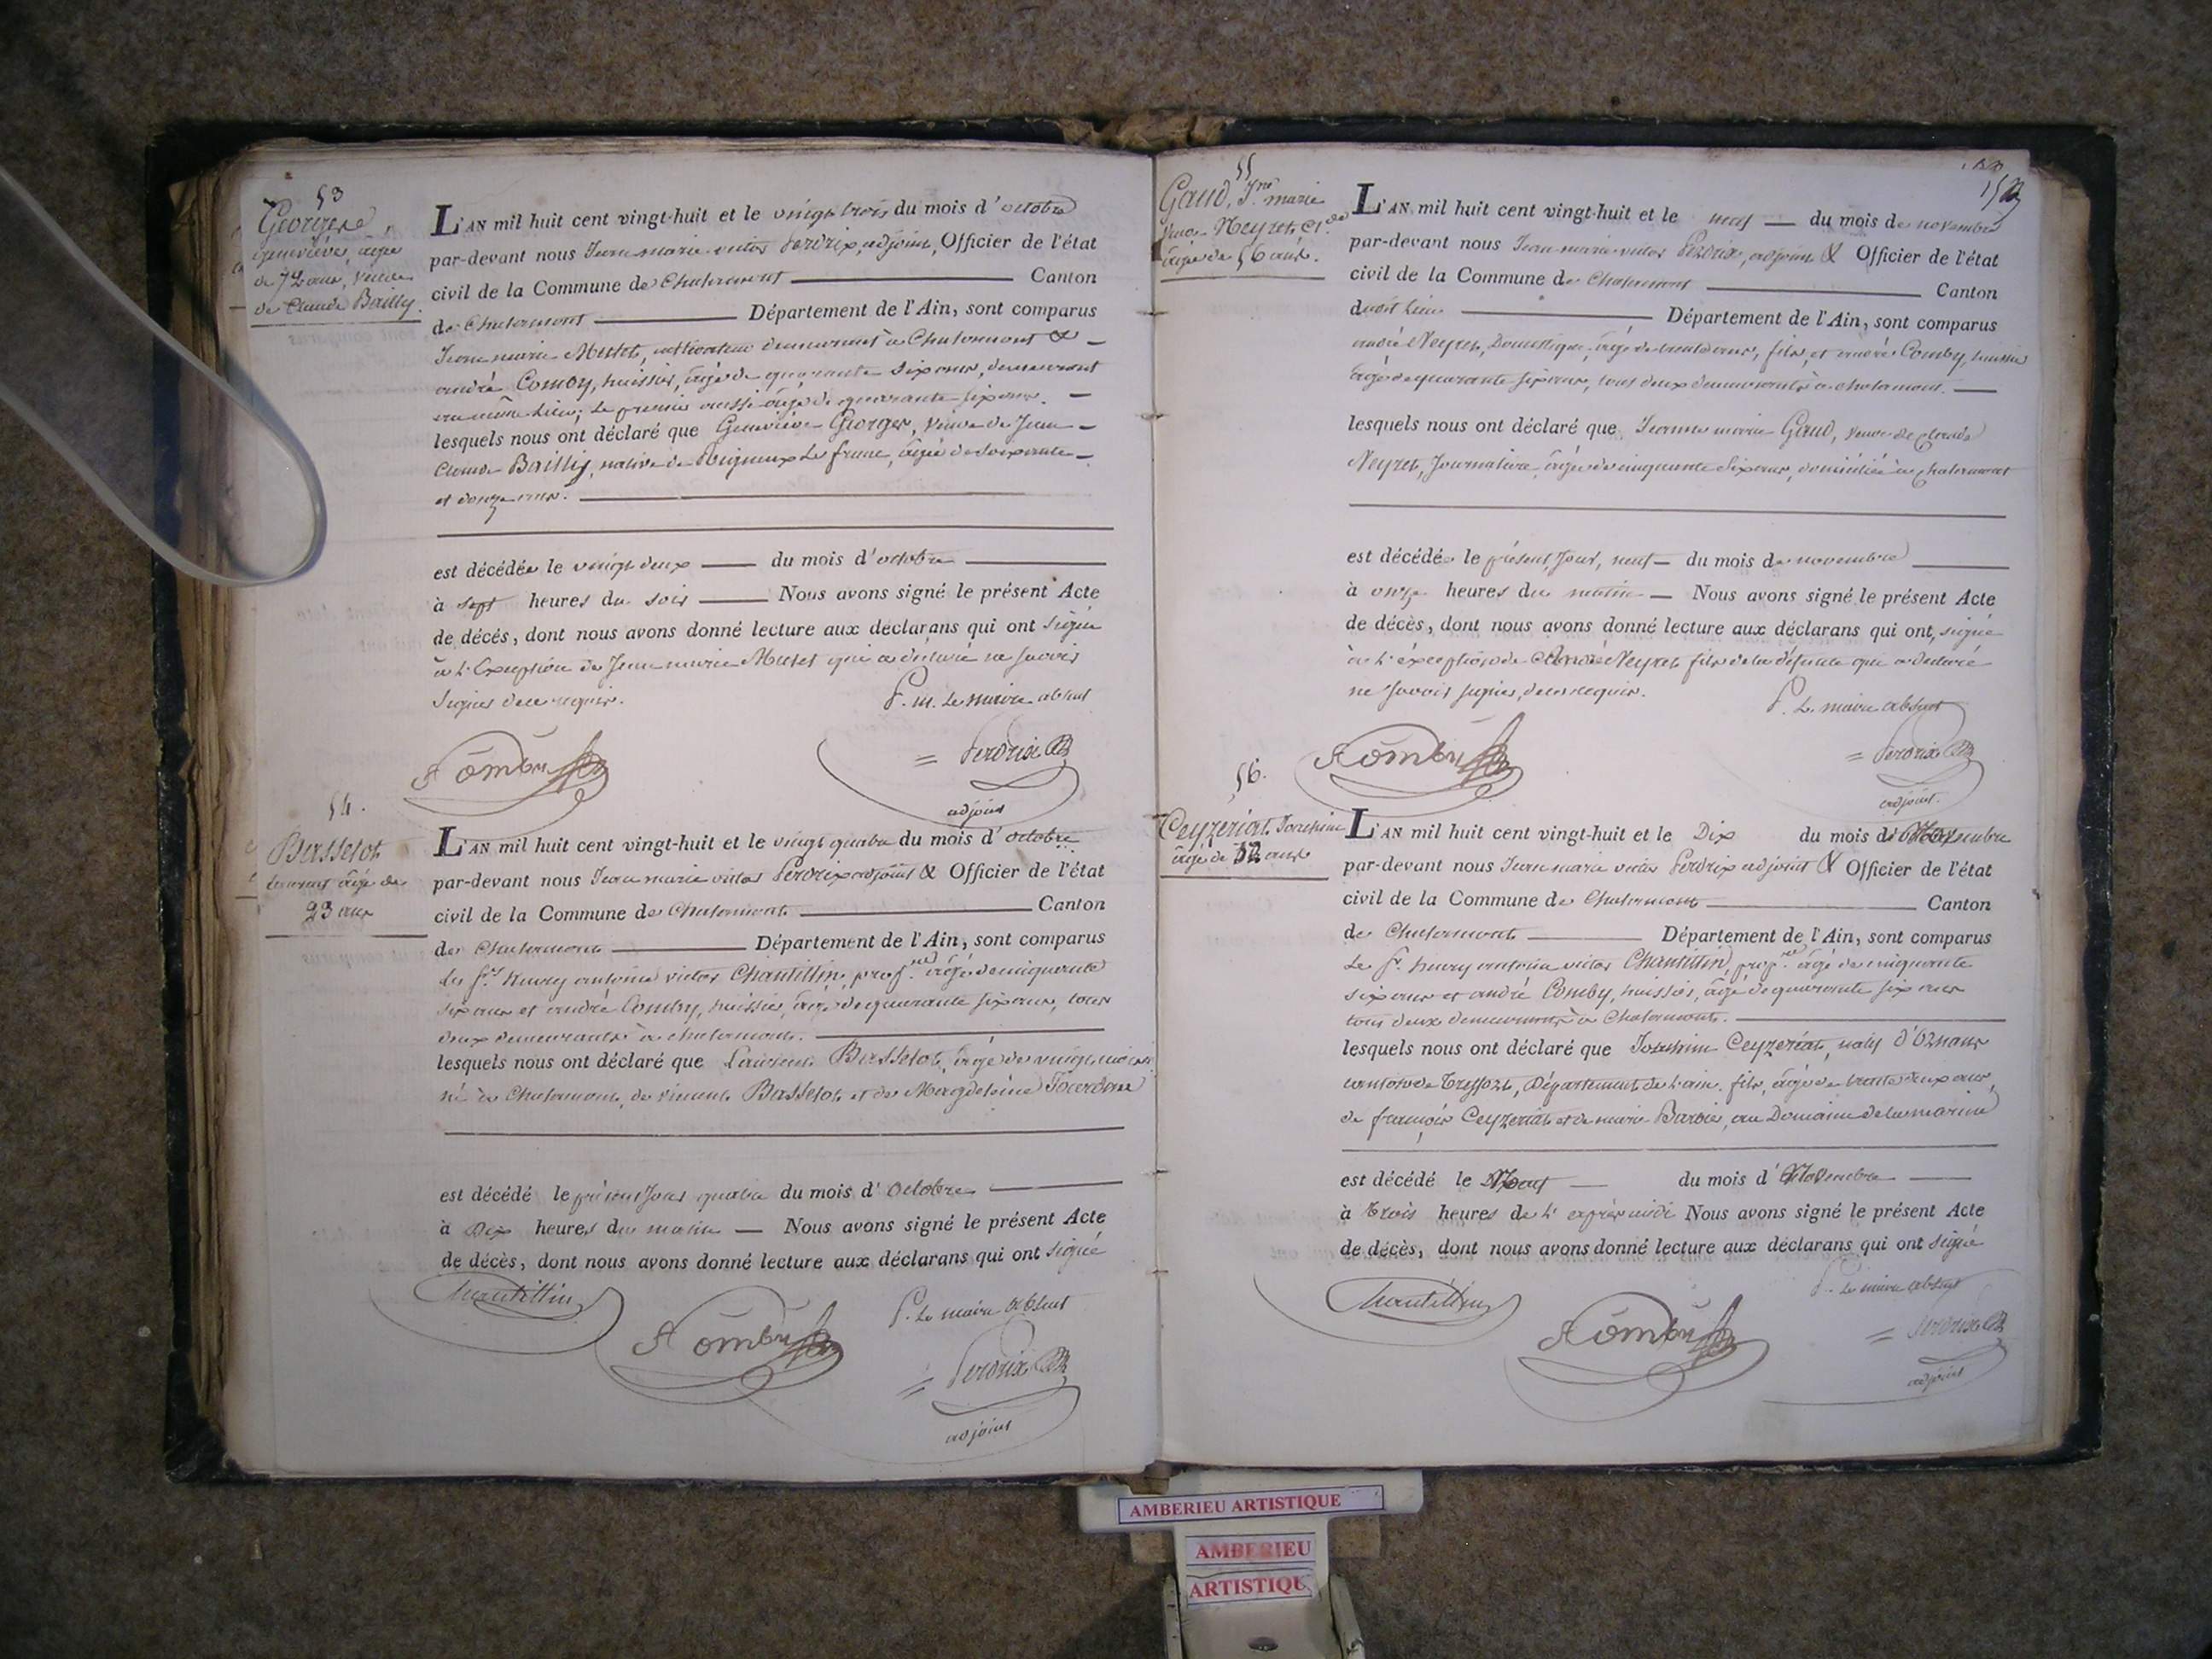 53
George
Geneviève, agée
de 72 ans, veuve
de Claude Bailly.
L'AN mil huit cent vingt-huit et le vingt trois du mois d'octobre
par-devant nous Jean marie victor Perdrix, adjoint, Officier de l'état
civil de la Commune de Chalamont Canton
de Chalamont Département de l'Ain, sont comparus
Jean marie Mulet, cultivateur demeurant à Chalamont &
andré Comby, huissier, âgé de quarante six ans, demeurant
au même lieu; le premier aussi âgé de quarante six ans.
lesquels nous ont déclaré que Geneviève George, veuve de Jean
Claude Bailly, native de Rigneux le franc, âgée de soixante
et douze ans.
est décédée le vingt deux du mois d'octobre
à sept heures du soir Nous avons signé le présent Acte
de décés, dont nous avons donné lecture aux déclarans qui ont signé
à l'Exception de Jean marie Mulet qui a declaré ne savoir
signer de ce requis.
P. m. Le maire absent
A Comby
Perdrix
adjoint
54.
Basselot
Laurent âgé de
23 ans
L'AN mil huit cent vingt-huit et le vingt quatre du mois d'octobre
par-devant nous Jean marie victor Perdrix adjoint & Officier de l'état
civil de la Commune de Chalamont Canton
de Chalamont Département de l'Ain, sont comparus
les Srs henry antoine victor Chantittin, propre âgé de cinquante
six ans et andré Comby, huissier, âgé de quarante six ans, tous
deux demeurants à chalamont.
lesquels nous ont déclaré que Laurent Basselot, âgé de vingt
né à Chalamont, de vincent Basselot et de Magdeleine
est décédé le présent Jour quatre du mois d'Octobre
à Dix heures du matin Nous avons signé le présent Acte
de décès, dont nous avons donné lecture aux déclarans qui ont signé
Chantittin
A Comby
P. Le maire absent
Perdrix
adjoint
153
55
Gaud, Jne marie
veuve Neyret Cde
âgée de 56 ans.
L'AN mil huit cent vingt-huit et le neuf du mois de novembre
par-devant nous Jean marie victor Perdrix, adjoint & Officier de l'état
civil de la Commune de Chalamont Canton
dudit lieu Département de l'Ain, sont comparus
andré Neyret, Domestique, âgé de ans, fils, et andré Comby, huissier
âgé de quarante six ans, tous deux demeurants à chalamont.
lesquels nous ont déclaré que Jeanne marie Gaud, veuve de Claude
Neyret, Journalière, âgée de cinquante six ans, domiciliée à Chalamont
est décédée le présent Jour, neuf du mois de novembre
à onze heures du matin Nous avons signé le présent Acte
de décès, dont nous avons donné lecture aux déclarans qui ont, signé
à l'éxception de André Neyret fils de la défunte qui a declaré
ne savoir signer, de ce requis.
P. Le maire absent
A Comby
Perdrix
adjoint.
56.
Ceyzeriat Joachim
âgé de 32 ans
L'AN mil huit cent vingt-huit et le Dix du mois de Novembre
par-devant nous Jean marie victor Perdrix adjoint & Officier de l'état
civil de la Commune de Chalamont Canton
de Chalamont Département de l'Ain, sont comparus
Le Sr. henry antoine victor Chantittin, propre âgé de cinquante
six ans et andré Comby, huissier, âgé de quarante six ans
tous deux demeurants à Chalamont.
lesquels nous ont déclaré que Joachim Ceyzeriat, natif d'
canton de Treffort, Département de l'ain, fils, âgé de trente deux ans,
de françois Ceyzeriat et de marie Barbier, au Domaine de la marine
est décédé le Neuf du mois d'Novembre
à Trois heures de l'après midi Nous avons signé le présent Acte
de décès, dont nous avons donné lecture aux déclarans qui ont signé
Chantittin
A Comby
P. Le maire absent
Perdrix
adjoint
AMBERIEU ARTISTIQUE
AMBERIEU
ARTISTIQU